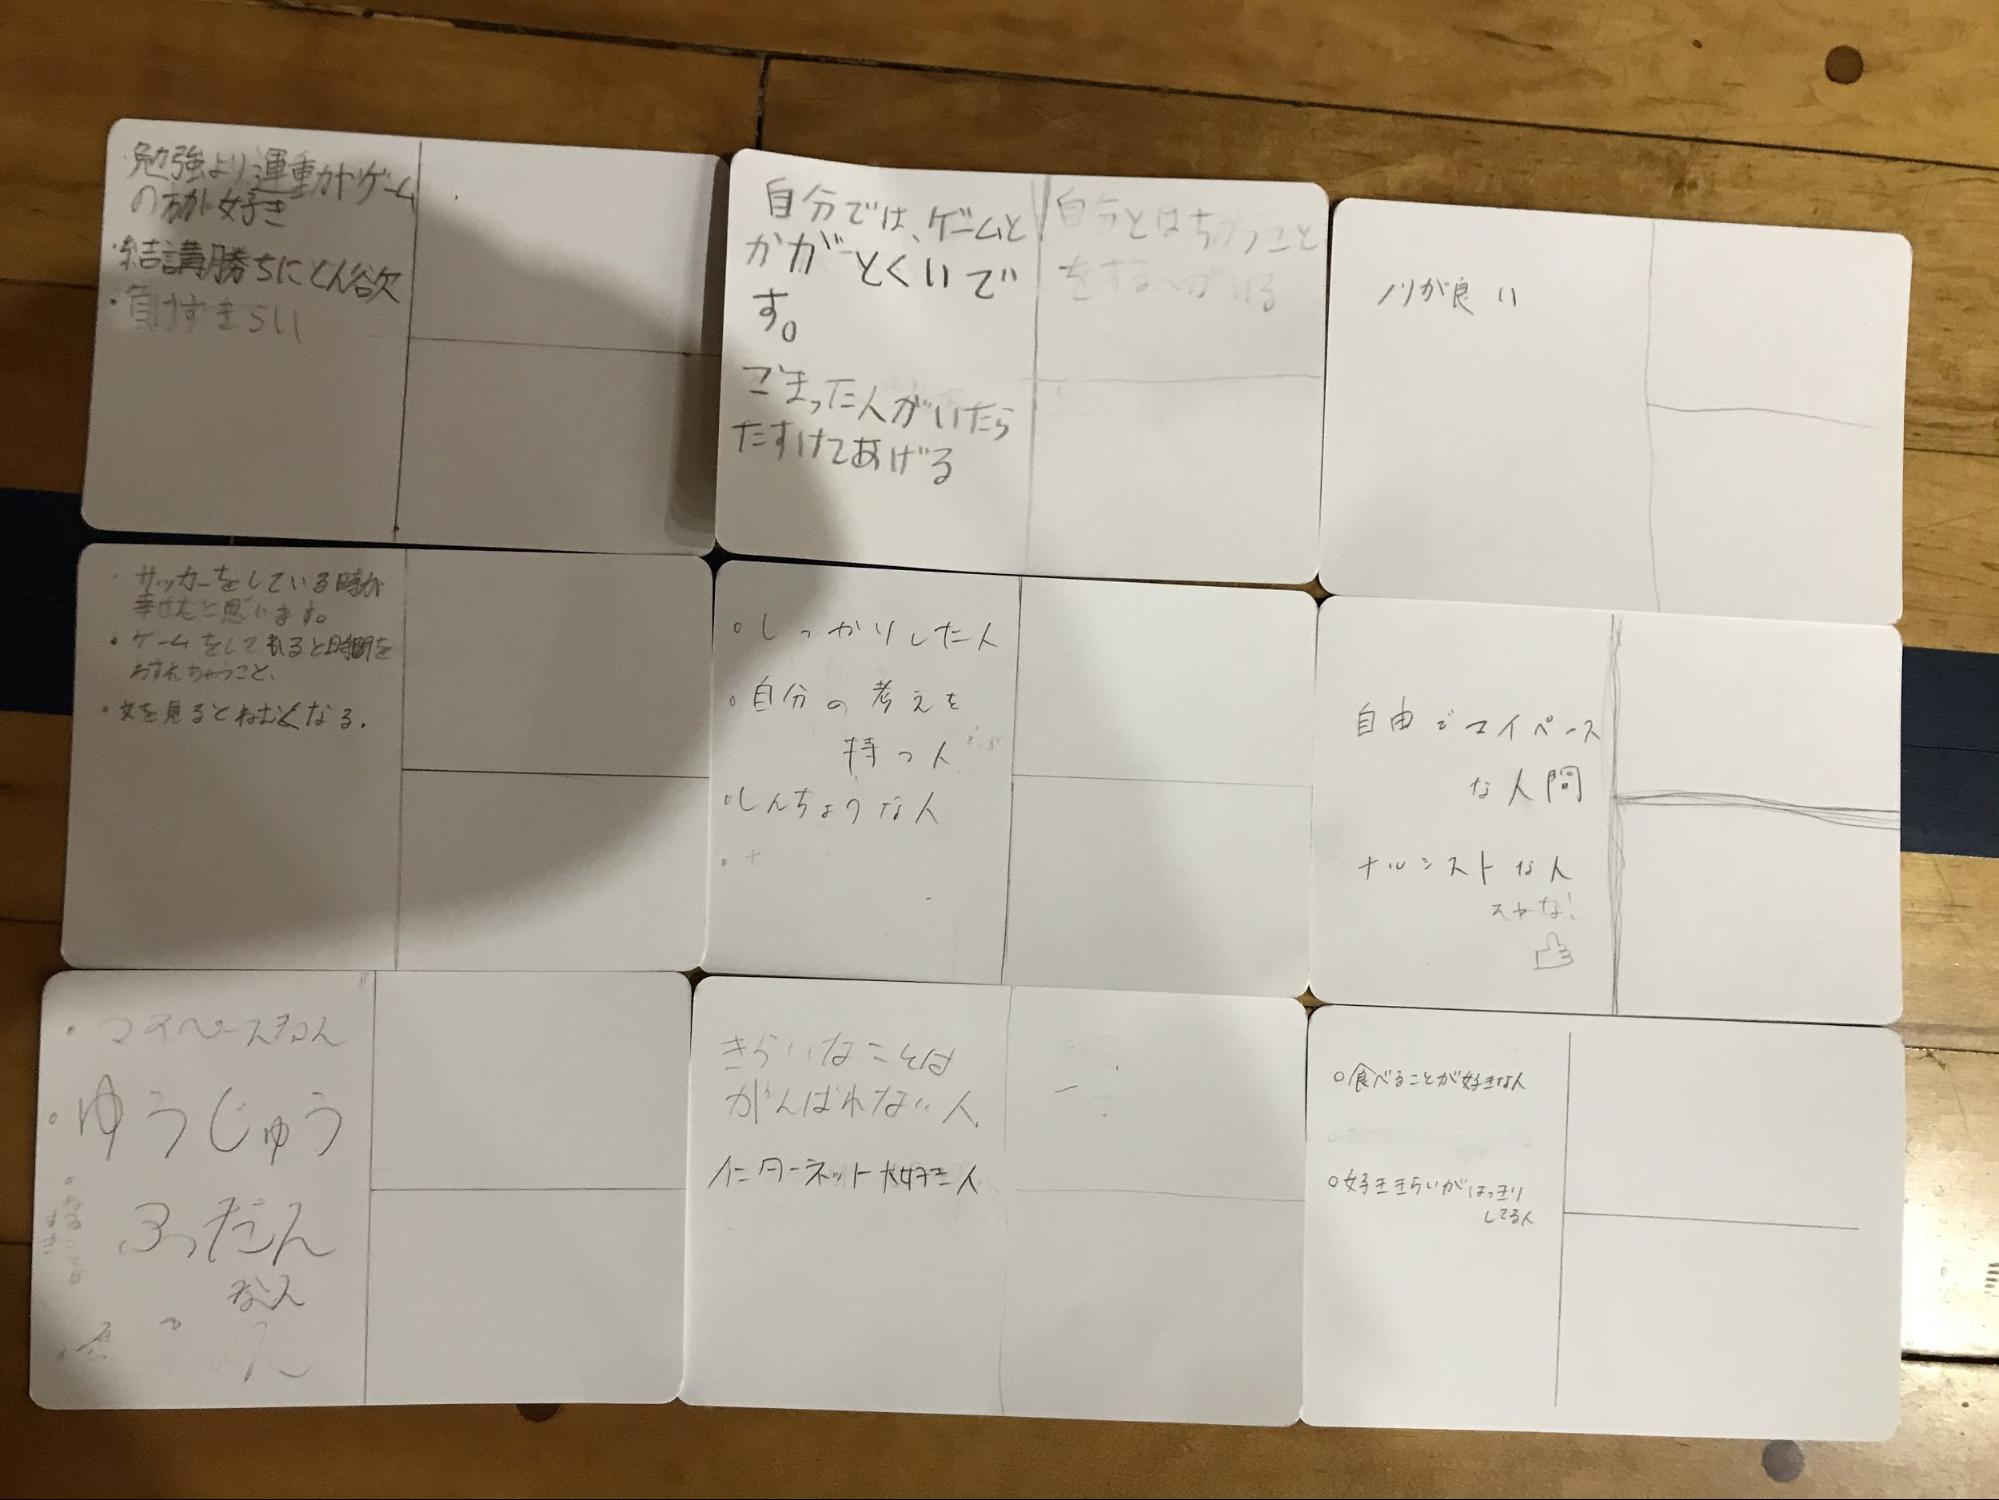 勉強より運動やゲーム
の方が好き
・結講勝ちにどん欲
・負けずきらい
自分では、ゲームと
かがとくいで
す。
こまった人がいたら
たすけてあげる
自分とはちがうこと
をする人がいる
ノリが良い
・サッカーをしている時が
幸せだと思います。
・ゲームをしてると時間を
わすれちゃうこと、
・文を見るとねむくなる.
○しっかりした人
○自分の考えを
持つ人
○しんちょうな人
自由でマイペース
な人間
ナルシストな人
・マイペースな人
○ゆうじゅう
ふだん
な人
きらいなことは
がんばれない人
インターネット大好き人
○食べることが好きな人
○好ききらいがはっきり
してる人